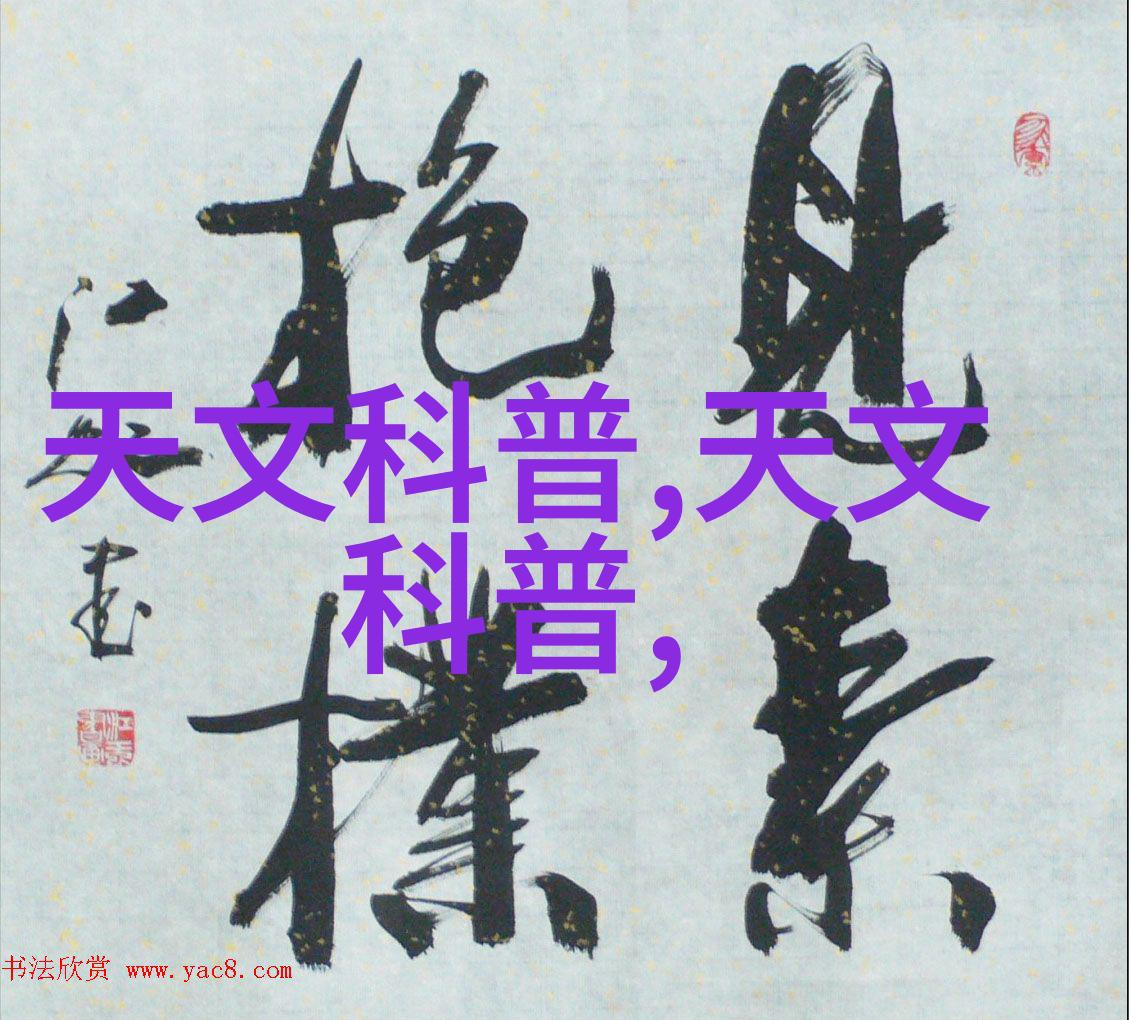 見素
抱樸
江 書
天文科普,天文
科普,
书法欣赏 www.yac8.com